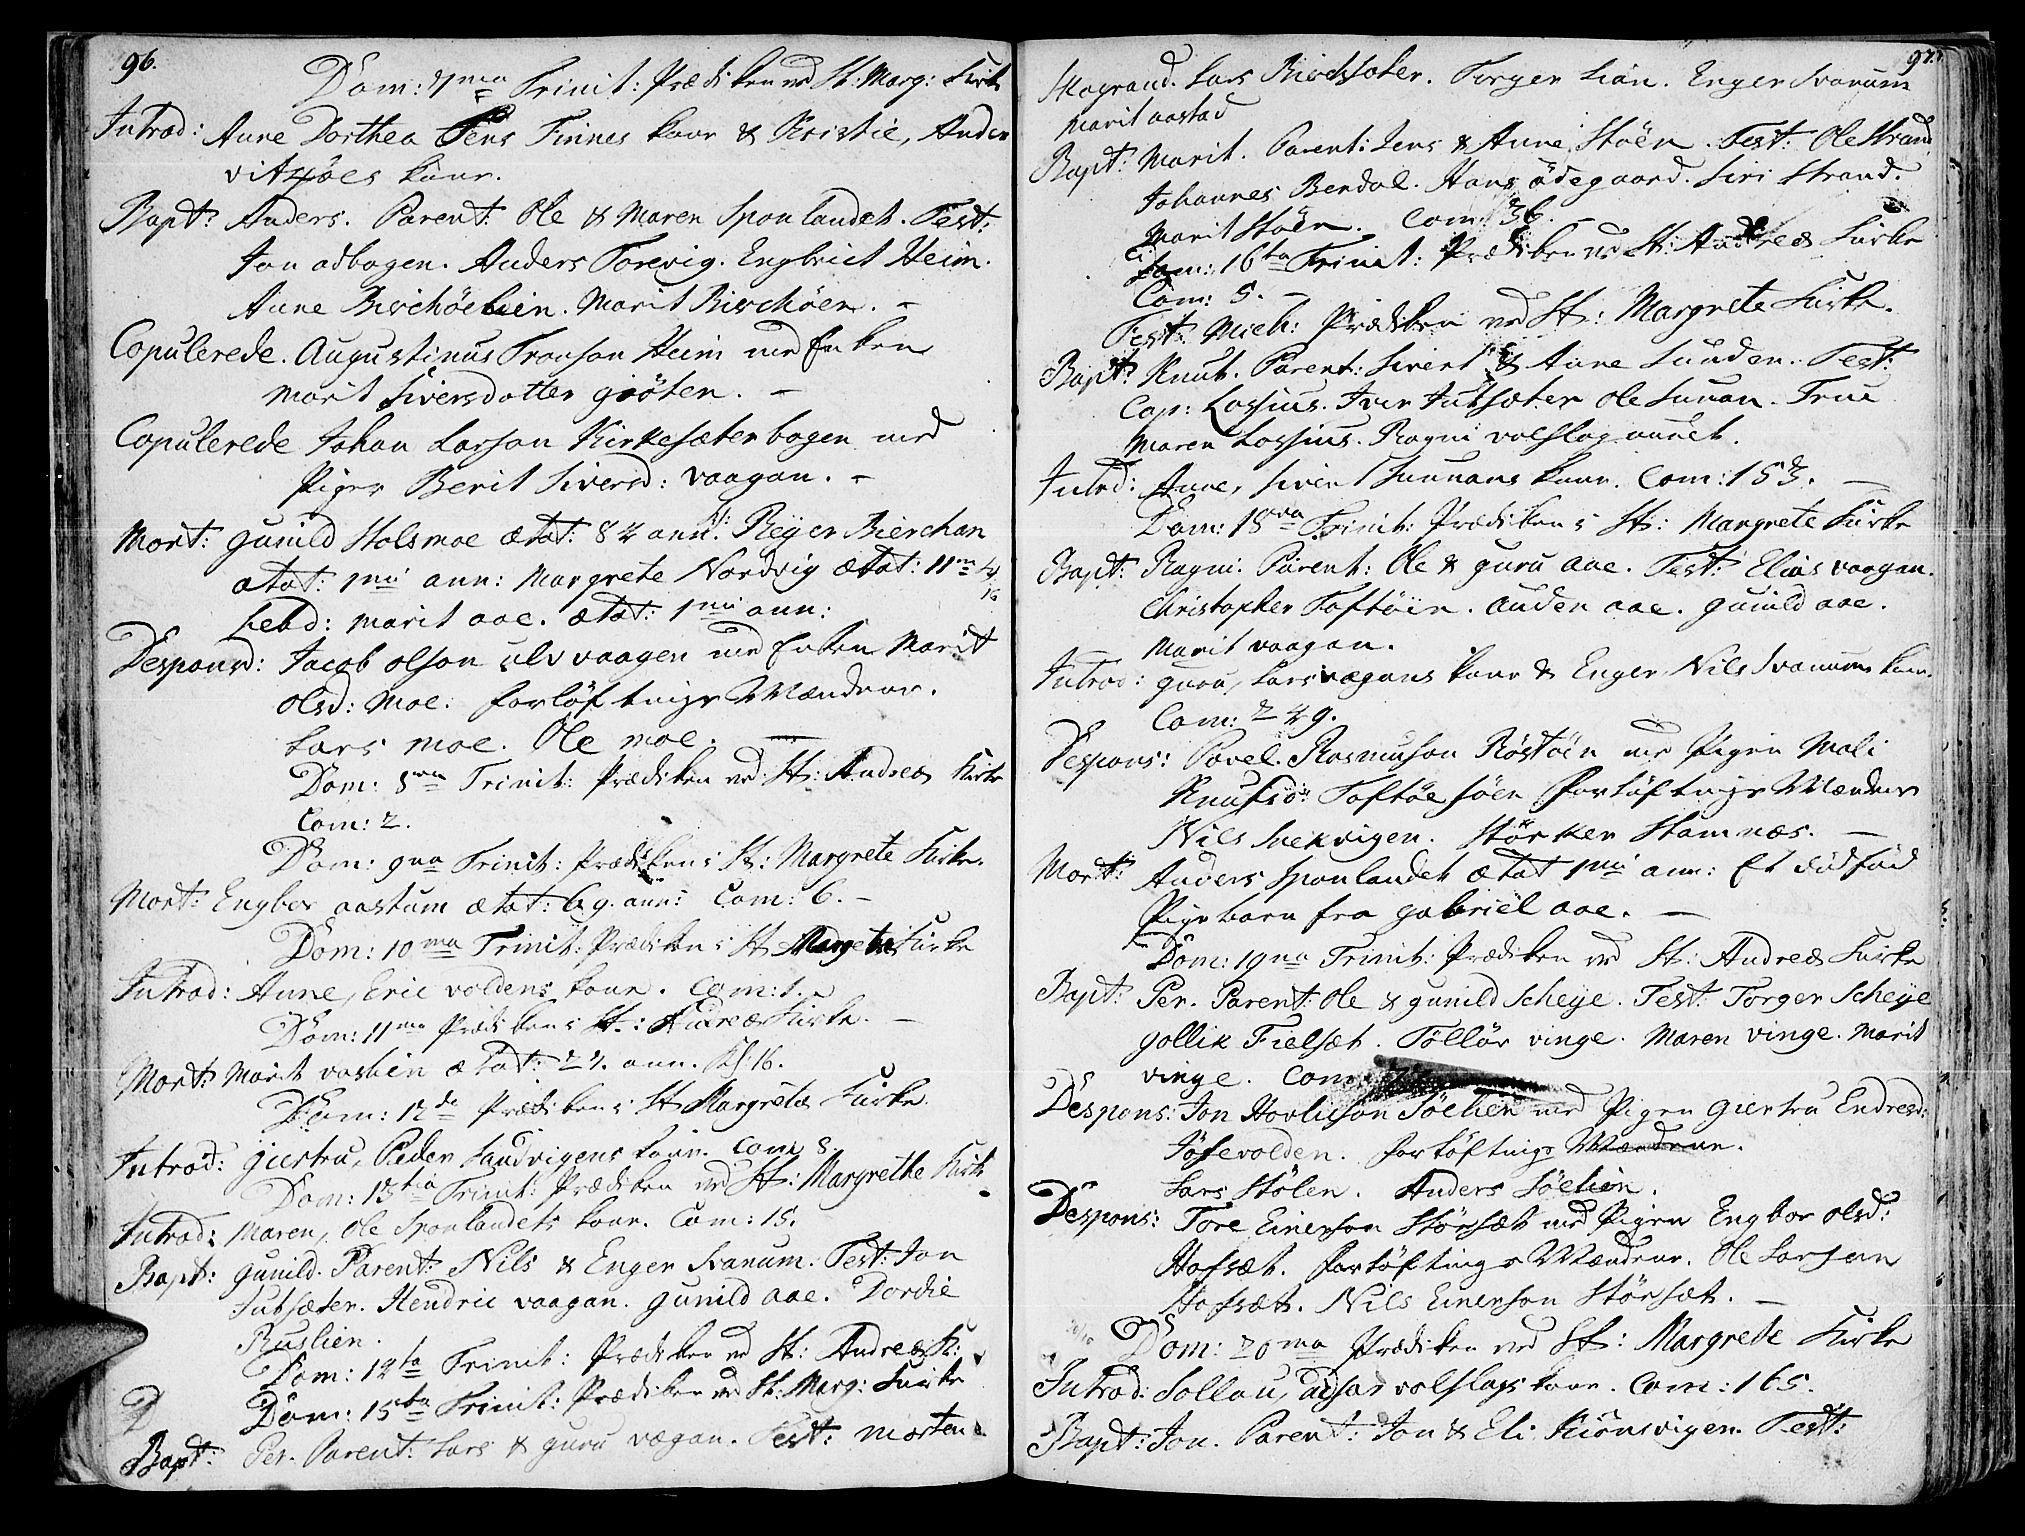 96.
Dom: 7ma Trinit: Prædiken ved St: Marg: Kirke
Introd: Anne Dorthea Jens Finnes kone & Kristie, Anders
vitsöes kone.
Bapt: Anders. Parent: Ole & Maren Sponlandet. Test:
Jon adbogen. Anders Torevig. Engbrict Heim.
Anne Birchöelien. Marit Birchöen. –
Copulerede. Augustinus Tronson Heim med Enken
Marit Siversdotter gröten. –
Copulerede Johan Larson Kirkesæterbogen med
Pigen Berit Siversd: vaagan. –
Mort: gunild Holsmoe ætat: 84 ann: Beÿer Bierchan
ætat: 1mi ann: Margrete Nordvig ætat: 11m
hebd: marit aae. ætat: 1mi ann:
Desponsd: Jacob olson ulvvaagen med Enken Marit
olsd: Moe. forlöftnings Mændene.
Lars moe. Ole moe. —
Dom: 8va Trinit: Prædiken ved St: Andreæ Kirke
Com: 2.
Dom: 9na Trinit: Prædiken i St: Margrete Kirke.
Mort: Engbor aastum ætat: 69. ann: Com: 6. –
Dom: 10ma Trinit: Prædiken i St Margrete Kirke
Introd: Anne, Eric voldens kone. Com: 1.
Dom: 11ma Prædiken i St.: Andreæ Kirke. –
Mort: Marit vaslien ætat: 27. ann. 16.
Dom: 12de Prædiken i St Margretæ Kirke.
Introd: giertru, Peder Sandvigens kone. Com 8.
Dom: 13tia Trinit: Prædiken ved St: Margrethe Kirke
Introd: Maren, Ole Sponlandets kone. Com: 15.
Bapt: gunild. Parent: Nils & Enger Svanum. Test: Jon
Jutsæter. Hendric vaagan. gunild aae. Dordie
Ruslien.
Dom: 14ta Trinit: Prædiken ved St: Andreæ K:
Dom: 15ta Trinit: Prædiken ved St: Marg: Kirke
Bapt: Per. Parent: Lars & guru vægan. Test: Morten
97.
Skogrand. Lars Birchsæter. Torger Liön. Enger Svanum
Marit aastad
Bapt: Marit. Parent: Jens & Anne Stöen. Test: Ole Strand
Johannes Berdal. Hans ödegaard. Siri Strand.
Marit Stöen. Com: 36.
Dom: 16ta Trinit: Prædiken ved St: Andreæ Kirke
Com: 5. –
Fest: Mich: Prædiken ved St: Margrete Kirke.
Bapt: Knut. Parent: Sivert & Anne Sunden. Test:
Cap: Lossius. Iver Jutsæter Ole Sunan. Frue
Maren Lossius. Ragni valslag aunet.
Introd: Anne, Sivert Sunnans kone. Com: 153. —
Dom: 18va Trinit: Prædiken i St: Margrete Kirke
Bapt: Ragni. Parent: Ole & guru aae. Test: Elias vaagan.
Christopher Toftöien. Auden aae. gunild aae.
Marit vaagan.
Introd: guru, Lars vægans kone & Enger Nils Svanums kone.
Com: 249.
Despons: Povel Rasmuson Röstöen med Pigen Mali
Knutsd: Toftöesöen Forlöftnings Mændene
Nils Snekvigen. Störker Stamnæs. —
Mort: Anders Sponlandet ætat 1mi ann: Et dödföd
Pigebarn fra gabriel aae. —
Dom: 19na Trinit: Prædiken ved St: Andreæ Kirke
Bapt: Per. Parent: Ole & gunild Scheÿe. Test: Torger Scheÿe
gollik Fielsæt. Töllöv vinge. Maren vinge. Marit
vinge. Com:
Despons: Jon Hovlieson Söelien med Pigen giertru Endresd:
Jöfevolden. forlöftnings Mændene.
Lars Stölen. Anders Söelien.
Despons: Tore Einerson Störsæt med Pigen Engbor olsd:
Hofsæt. forlöftnings Mændene. Ole Larsen
Hofsæt. Nils Einerson Störsæt. —
Dom: 20ma Prædiken ved St: Margrete Kirke
Introd: Sollou, adser valslags kone. Com: 165.
Bapt: Jon. Parent: Jon & Eli Kiönsvigen. Test: